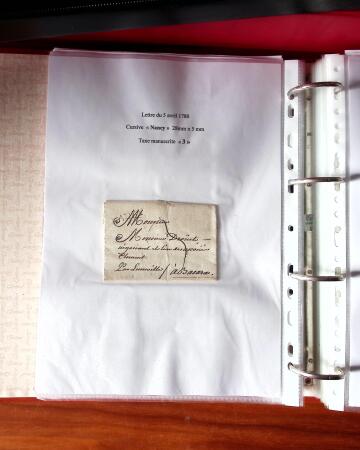 Lettre du 5 avril 1788
Cursive « Nancy » 28mm x 5 mm
Taxe manuscrite « 3 »
A Monsieur
Monsieur
negociant
Par Luneville / à Bacarac.